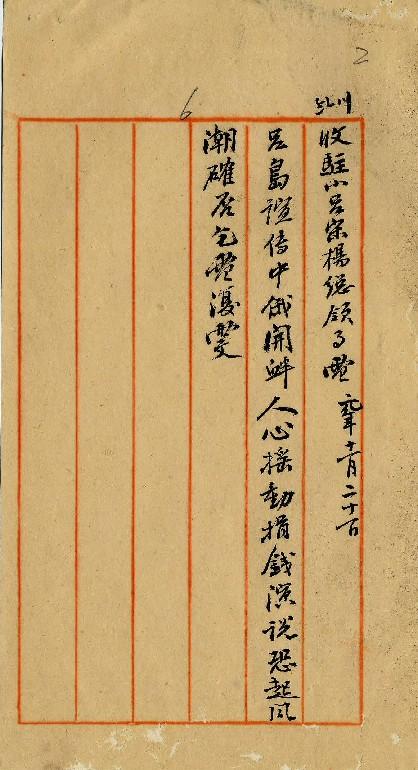 2
6
收駐小呂宋楊總領事電 元年十一月二十一日
呂島諠傳中俄開衅人心搖動捐錢演説恐起風
潮確否乞電復雯